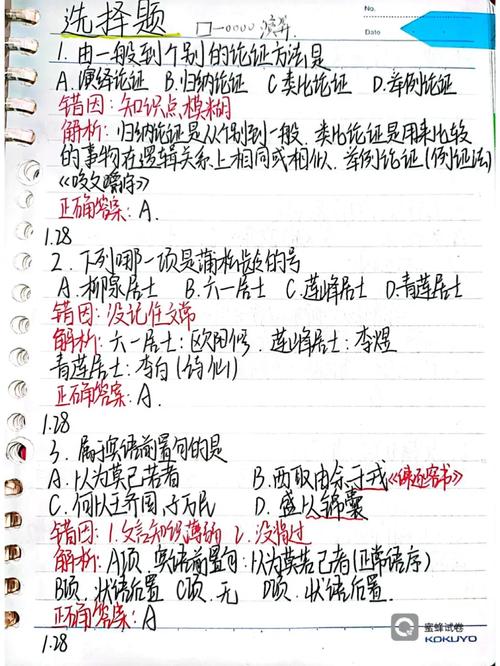 选择题
No.
Date
1. 由一般到个别的论证方法是
A.演绎论证 B.归纳论证 C类比论证 D.举例论证
错因:知识点模糊
解析:归纳论证是从个别到一般.类比论证是用来比较
的事物在逻辑关系上相同或相似.举例论证(例证法)
《咬文嚼字》
正确答案:A.
1.28
2.下列哪一项是蒲松龄的号
A.柳泉居士 B.六一居士 C莲峰居士 D.青莲居士
错因:没记住文常
解析:六一居士:欧阳修.莲峰居士:李煜
青莲居士:李白(谪仙)
正确答案:A.
1.28
3.属于宾语前置句的是
A.以为莫己若者 B.西取由余于戎
C.何以王齐国,子万民 D.盛以锦囊
错因:1.文言知识薄弱 2.没背过
解析:A项,宾语前置句:以为莫若己者(正常语序)
B项.状语后置 C项.无 D项.状语后置.
正确答案:A
1.28
蜜蜂试卷
KOKUYO